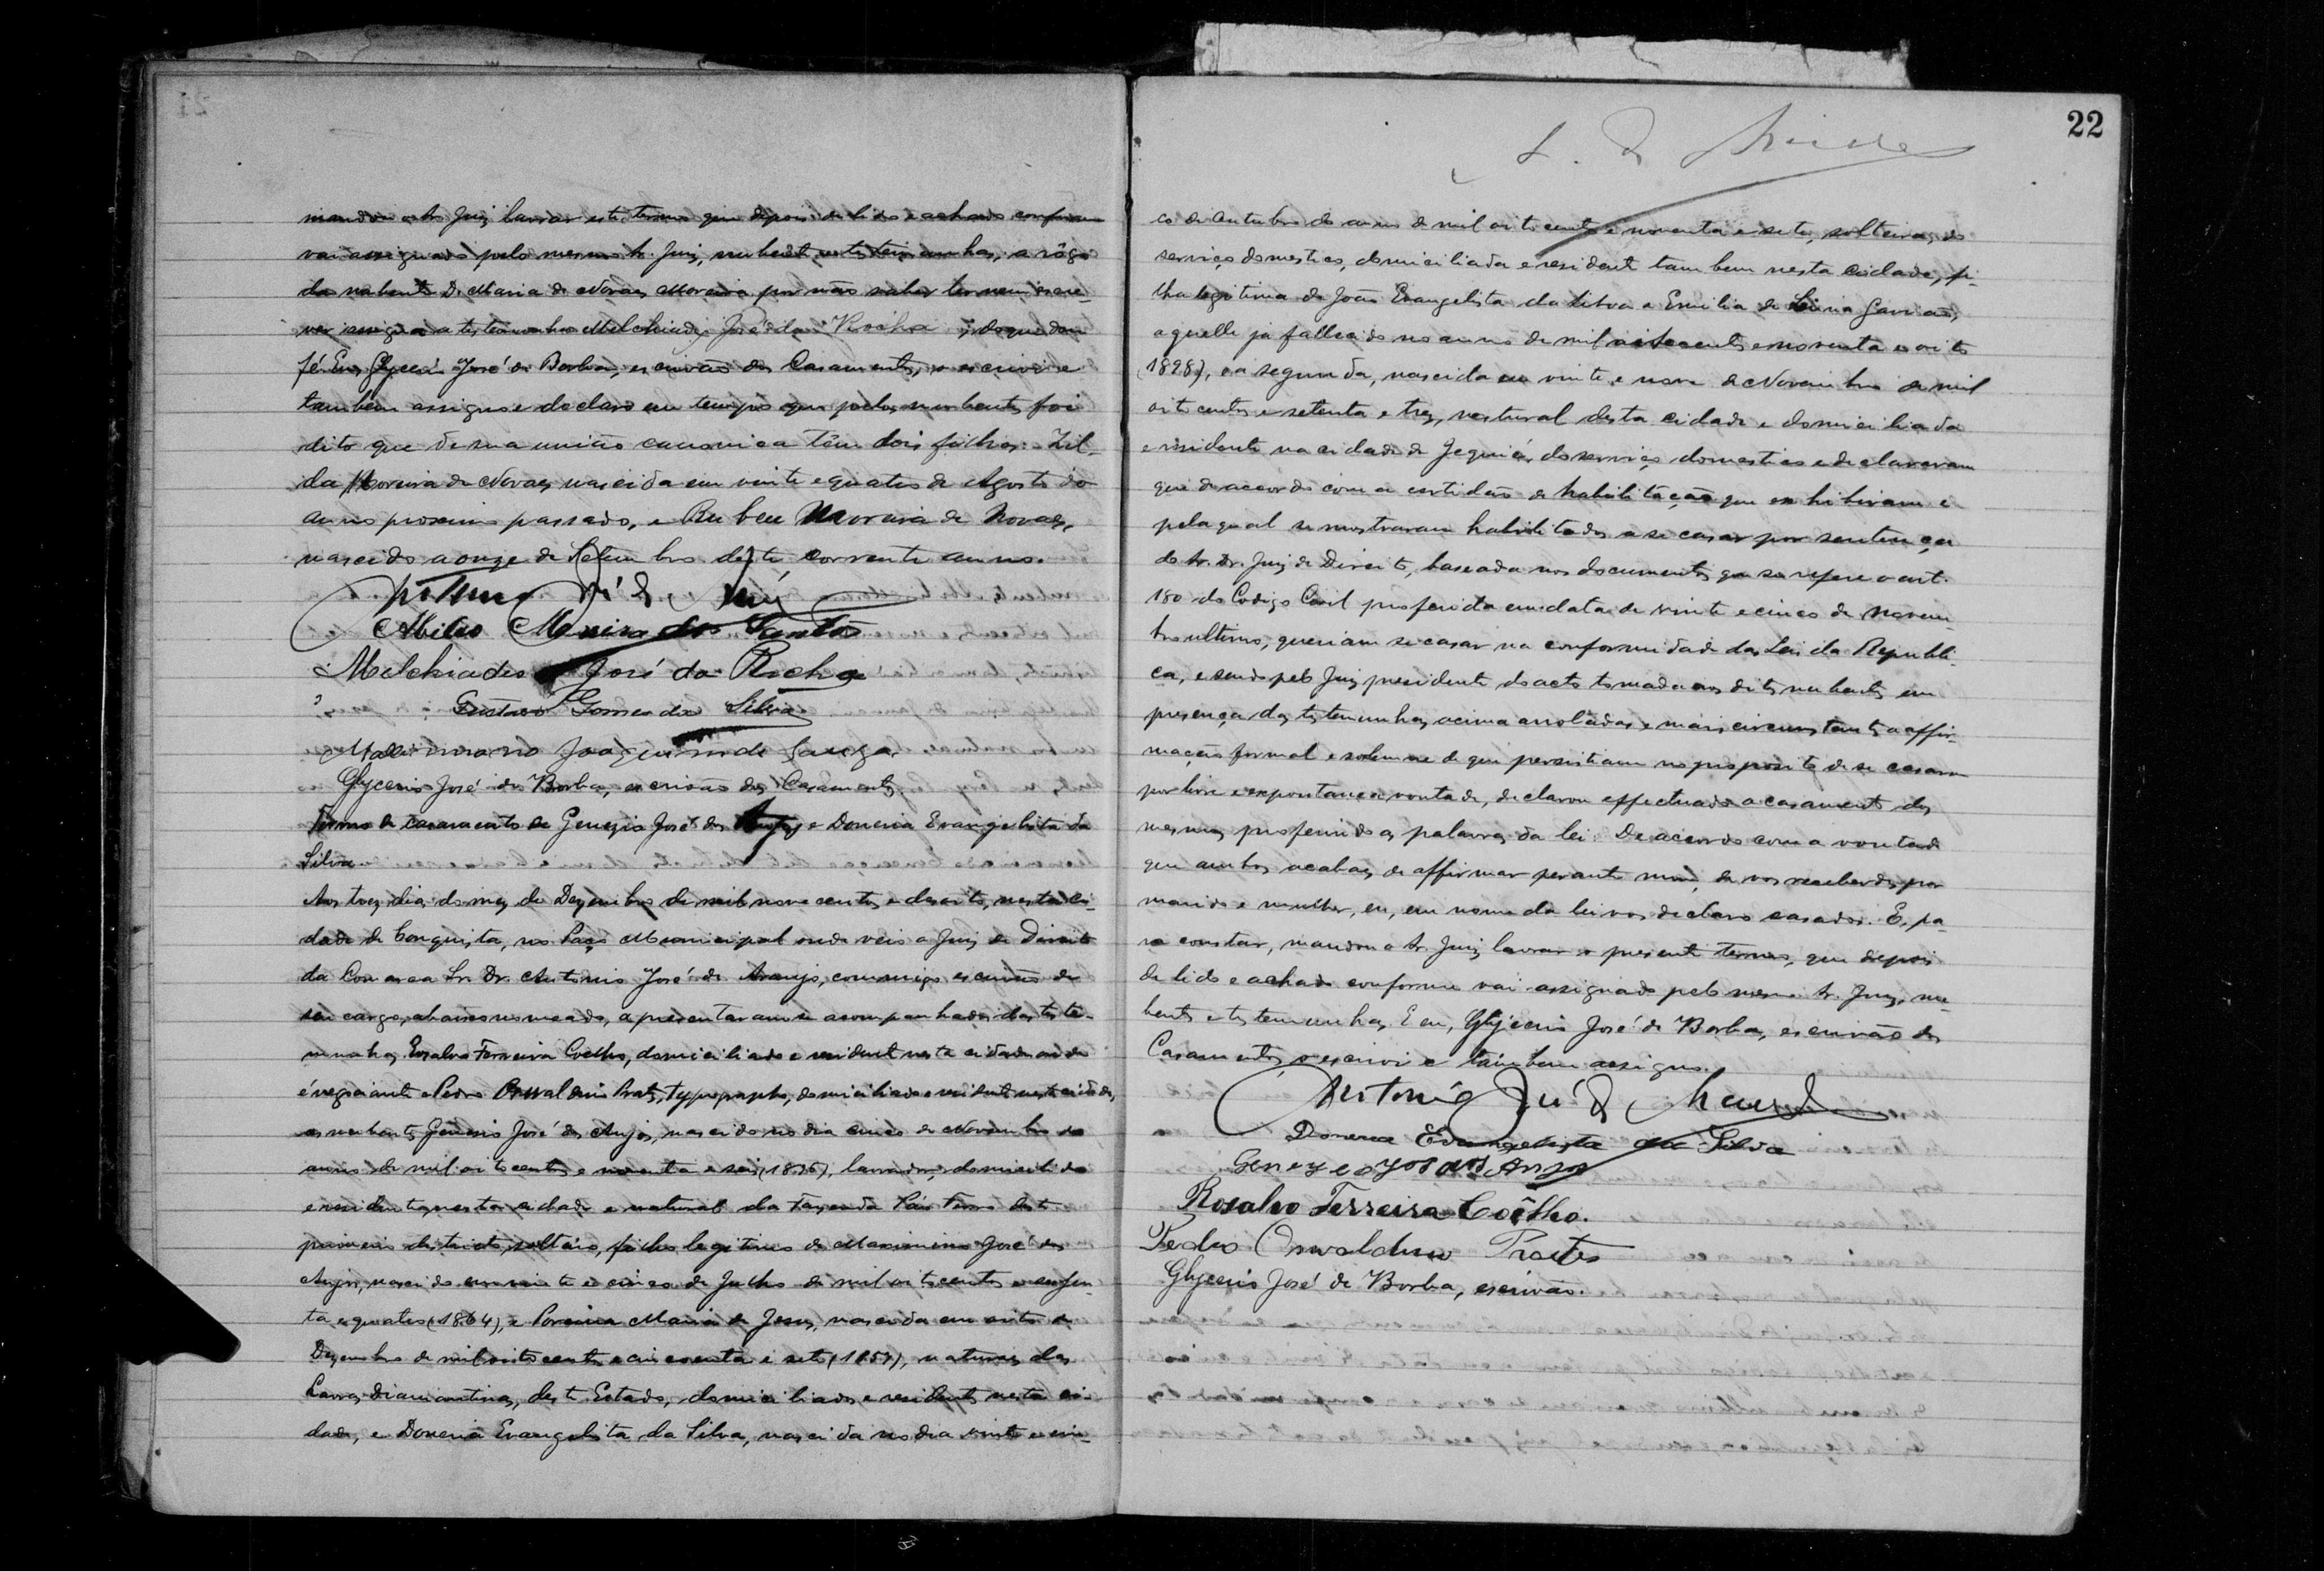 mandou o Sr. Juiz lavrar este termo que depois de lido e achado conforme
vai assignado pelo mesmo Sr. Juiz, nubentes, testemunhas, a rôgo
da nubente D. Maria de Novaes Moreira por não saber ler nem escre-
ver assigna a testemunha Melchiades José da Rocha; do que dou
fé. Eu, Glycerio José de Borba, escrivão dos Casamentos, o escrivi e
tambem assigno e declaro em tempo que pelos nubentes foi
dito que de sua união canonica têm dois filhos: Zil-
da Moreira de Novaes, nascida em vinte e quatro de Agosto do
anno proximo passado, e Ruben Moreira de Novaes,
nascido a onze de Setembro deste corrente anno.
Abilio Moreira dos Santos
Melchiades José da Rocha
Gustavo Gomes da Silva
Joaquim de
Glycerio José de Borba, escrivão dos Casamentos.
Termo de casamento de Genezio José dos Anjos e Doneria Evangelista da
Silva.
Aos tres dias do mez de Dezembro de mil nove centos e desoito, nesta Ci-
dade de Conquista, no Paço Municipal onde veio o Juiz de Direito
da Comarca Sr. Dr. Antonio José de Araujo, commigo escrivão de
seu cargo, abaixo nomeado, apresentaram-se acompanhados das teste-
munhas, Rosalvo Ferreira Coelho, domiciliado e residente nesta cidade onde
é negociante e Pedro Oswaldino Prates, typographo, domiciliado e residente nesta cidade,
os nubentes Genesio José dos Anjos, nascido no dia cinco de Novembro do
anno de mil oito centos e noventa e seis (1896), lavrador, domiciliado
e residente nesta cidade e natural da fazenda Páo Ferro deste
primeiro districto, solteiro, filho legitimo de Maximino José dos
Anjos, nascido em vinte e cinco de Julho de mil oito centos e sessen-
ta e quatro (1864), e Maria de Jesus, nascida em oito de
Dezembro de mil oito centos e cincoenta e sete (1857), naturaes das
Lavras Diamantinas, deste Estado, domiciliados e residentes nesta ci-
dade, e Doneria Evangelista da Silva, nascida no dia vinte e cin-
22
co de Outubro do anno de mil oito centos e noventa e sete, solteira, do
serviço domestico, domiciliada e residente tambem nesta cidade, fi-
lha legitima de João Evangelista da Silva e Emilia de
aquelle já fallecido no anno de mil oitocentos e noventa e oito
(1898), e a segunda, nascida em vinte e nove de Novembro de mil
oito centos e setenta e tres, natural desta cidade e domiciliada
e residente na cidade de Jequié, do serviço domestico e declararam
que de accordo com a certidão de habilitação que exhibiram e
pela qual se mostraram habilitados a se casar por sentença
do Sr. Dr. Juiz de Direito, baseada nos documentos que se refere o art.
180 do Codigo Civil proferida em data de vinte e cinco de Novem-
bro ultimo, queriam se casar na conformidade das Leis da Republi-
ca, e sendo pelo Juiz presidente do acto tomada aos ditos nubentes em
presença das testemunhas acima arroladas e mais circumstantes a affir-
mação formal e solemne de que persistiam no proposito de se casarem
por livre e expontanea vontade, declarou effectuado o casamento dos
mesmos proferindo as palavras da lei: De accordo com a vontade
que ambos acabaes de affirmar perante mim, de vos receberdes por
marido e mulher, eu, em nome da lei vos declaro casados. E, pa-
ra constar, mandou o Sr. Juiz lavrar o presente termo, que depois
de lido e achado conforme vai assignado pelo mesmo Sr. Juiz, nu-
bentes e testemunhas. E eu, Glycerio José de Borba, escrivão dos
Casamentos, o escrivi e tambem assigno.
Antonio José de Araujo
Doneria Evangelista da Silva
Genezio José dos Anjos
Rosalvo Ferreira Coêlho.
Pedro Oswaldino Prates
Glycerio José de Borba, escrivão.